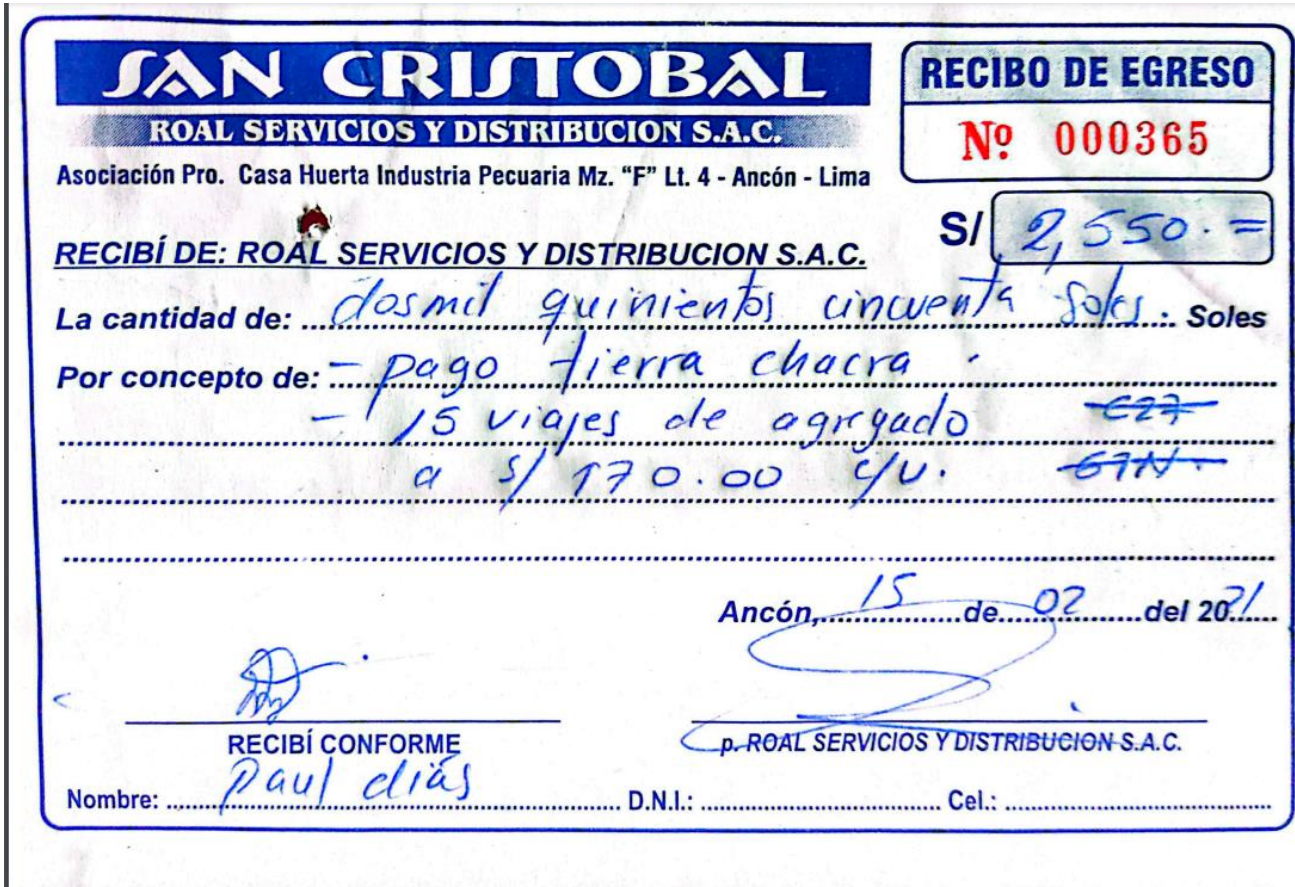 SAN CRISTOBAL
ROAL SERVICIOS Y DISTRIBUCION S.A.C.
Asociación Pro. Casa Huerta Industria Pecuaria Mz. "F" Lt. 4 - Ancón - Lima
RECIBO DE EGRESO
Nº 000365
S/ 2,550.=
RECIBÍ DE: ROAL SERVICIOS Y DISTRIBUCION S.A.C.
La cantidad de: dosmil quinientos cincuenta soles. Soles
Por concepto de: - pago tierra chacra.
- 15 viajes de agregado
a s/ 170.00 c/u.
Ancón, 15 de 02 del 2021
RECIBÍ CONFORME
p. ROAL SERVICIOS Y DISTRIBUCION S.A.C.
Nombre: Paul dias D.N.I.: Cel.: